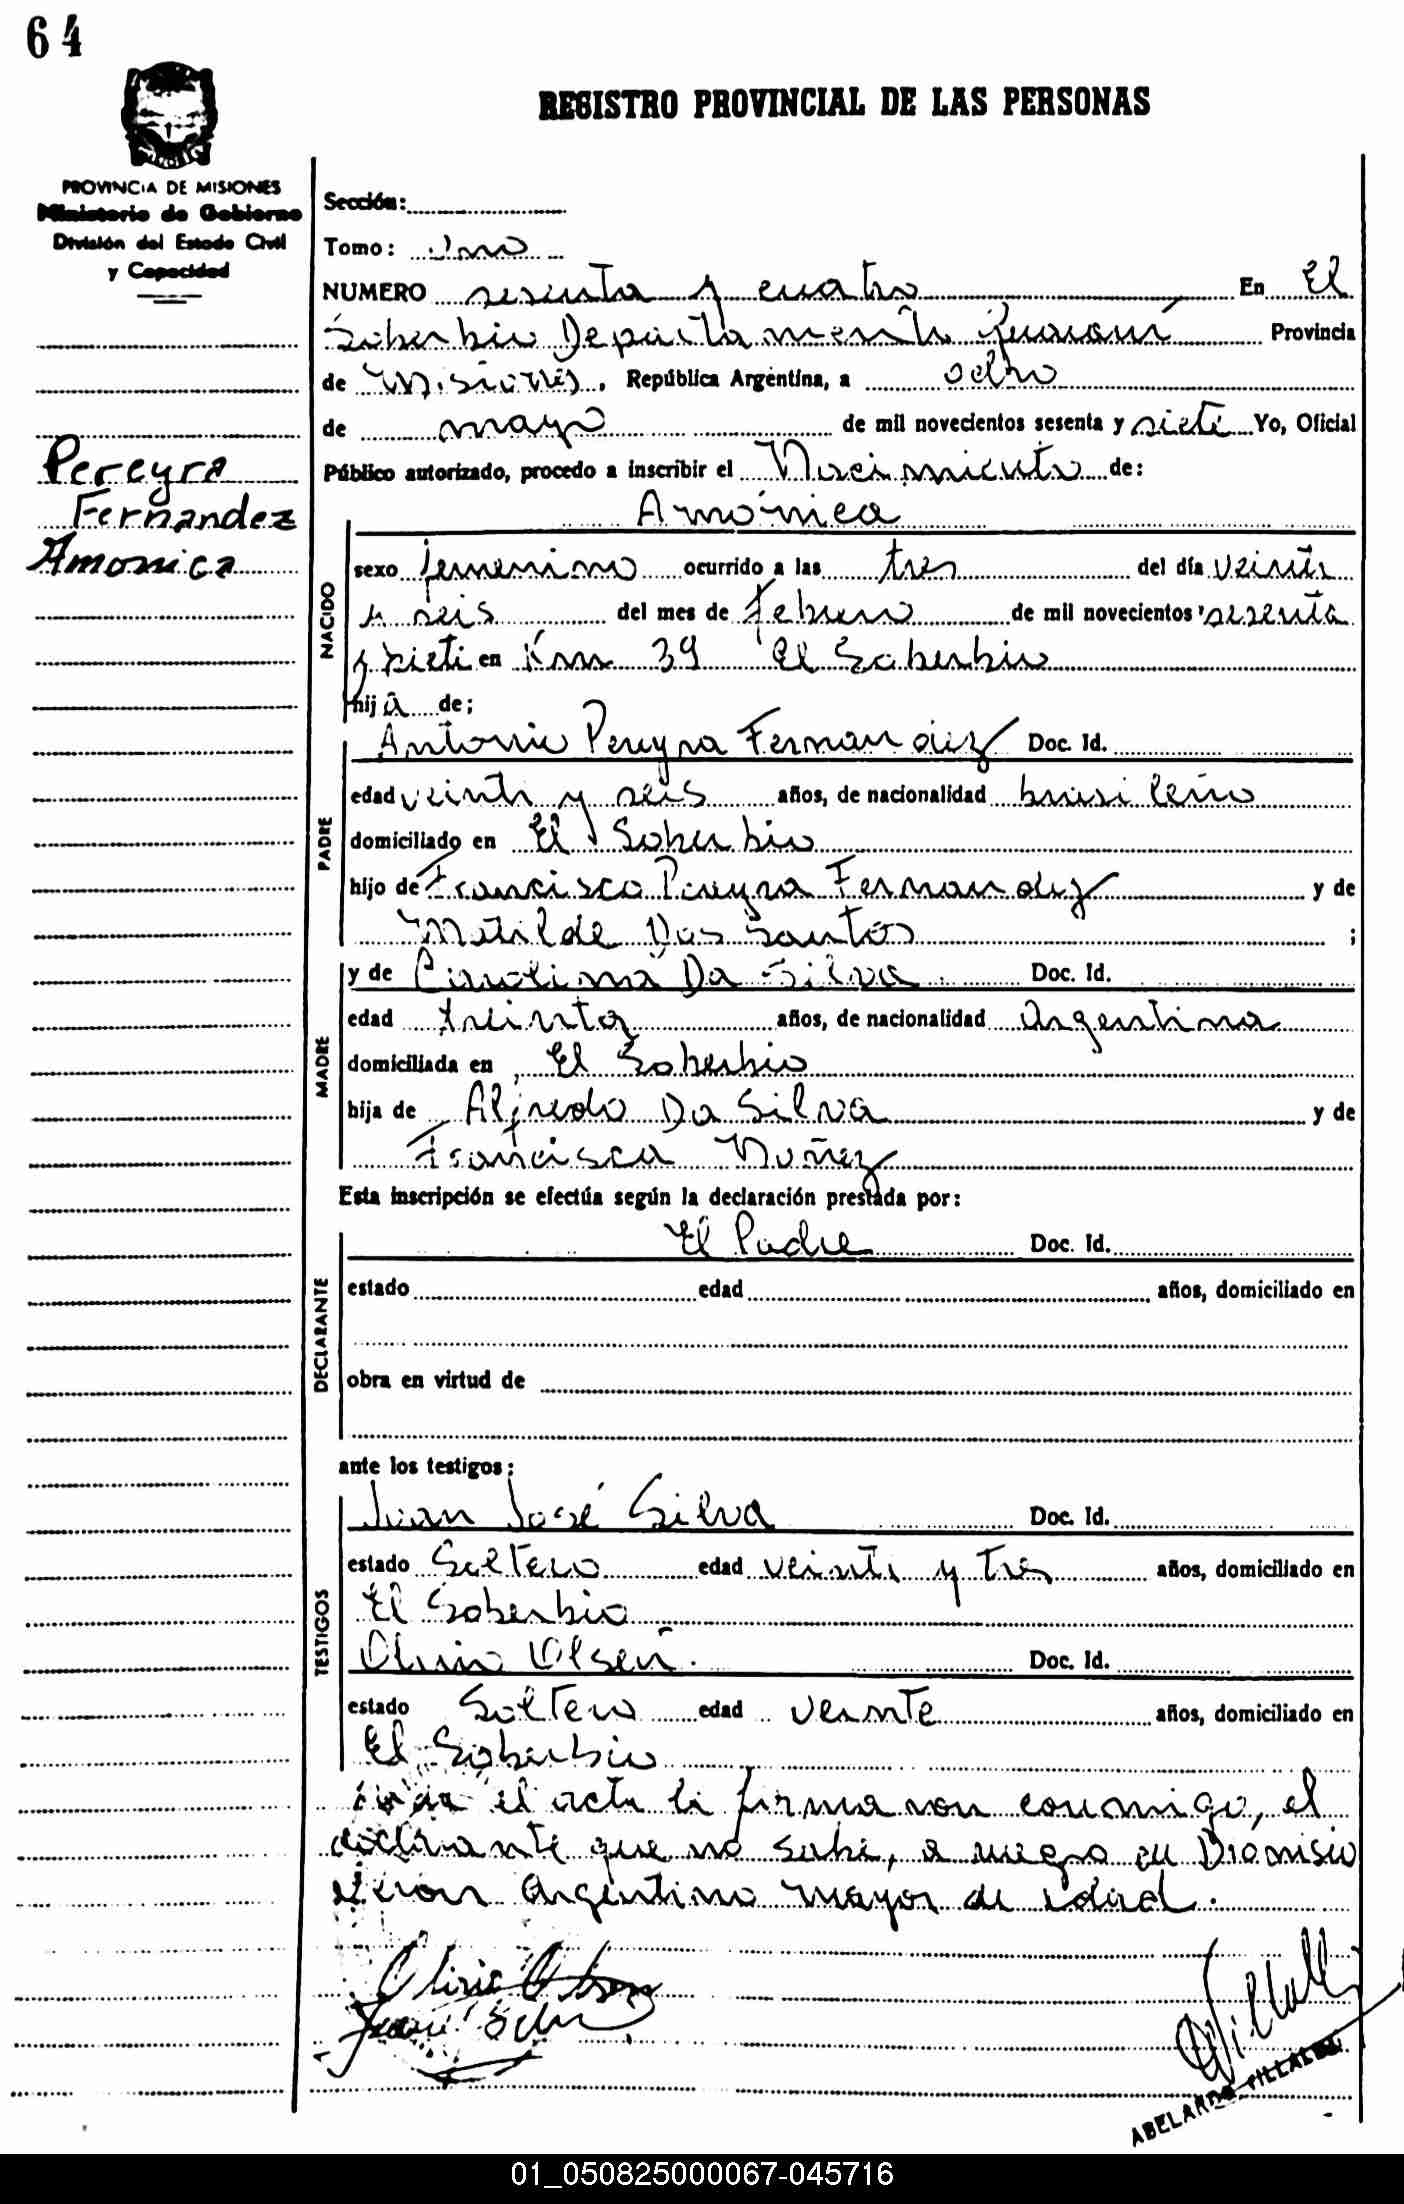 64
REGISTRO PROVINCIAL DE LAS PERSONAS
PROVINCIA DE MISIONES
Ministerio de Gobierno
División del Estado Civil
y Capacidad
Pereyra
Fernandez
Amonica
Sección:
Tomo: Uno
NUMERO sesenta y cuatro En El
Soberbio Departamento Guaraní Provincia
de Misiones, República Argentina, a ocho
de mayo de mil novecientos sesenta y siete Yo, Oficial
Público autorizado, procedo a inscribir el Nacimiento de:
Amónica
NACIDO
sexo femenino ocurrido a las tres del día veinti
y seis del mes de febrero de mil novecientos sesenta
y siete en Km 39 El Soberbio
hija de;
PADRE
Antonio Pereyra Fernandez Doc. Id.
edad veinti y seis años, de nacionalidad brasileño
domiciliado en El Soberbio
hijo de Francisco Pereyra Fernandez y de
Matilde Dos Santos ;
MADRE
y de Carolina Da Silva Doc. Id.
edad treinta años, de nacionalidad Argentina
domiciliada en El Soberbio
hija de Alfredo Da Silva y de
Francisca Nuñez
Esta inscripción se efectúa según la declaración prestada por:
DECLARANTE
El Padre Doc. Id.
estado edad años, domiciliado en
obra en virtud de
ante los testigos:
TESTIGOS
Juan José Silva Doc. Id.
estado Soltero edad veinti y tres años, domiciliado en
El Soberbio
Olirio Olsen. Doc. Id.
estado Soltero edad veinte años, domiciliado en
El Soberbio
el acta la firmaron conmigo, el
declarante que no sabe, a ruego su Dionisio
Argentino mayor de edad.
Olirio Olsen
Juan Silva
ABELARDO VILLALBA
01_050825000067-045716